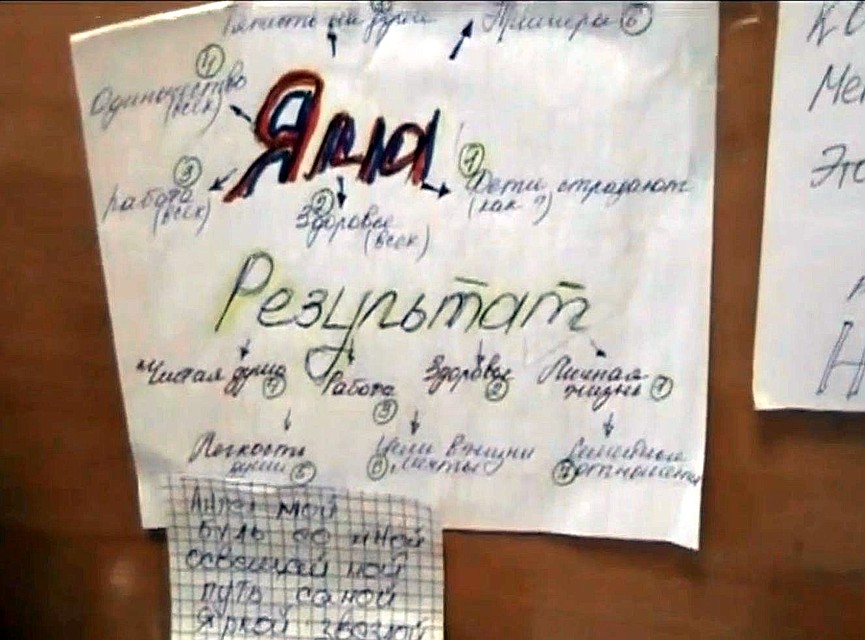 души
⑥
④
Одиночество
(всех)
Я пью
③
работа
(всех)
②
Здоровье
(всех)
①
Дети страдают
(как я)
Результат
"Чистая душа
Работа
③
Здоровье
②
Личная
жизнь ①
Легкости
души ⑤
Цели в жизни
⑥ мечты
Семейные
отношения
Ангел мой
будь со мной
освещай мой
путь самой
яркой звездой
Ме
Это
Н